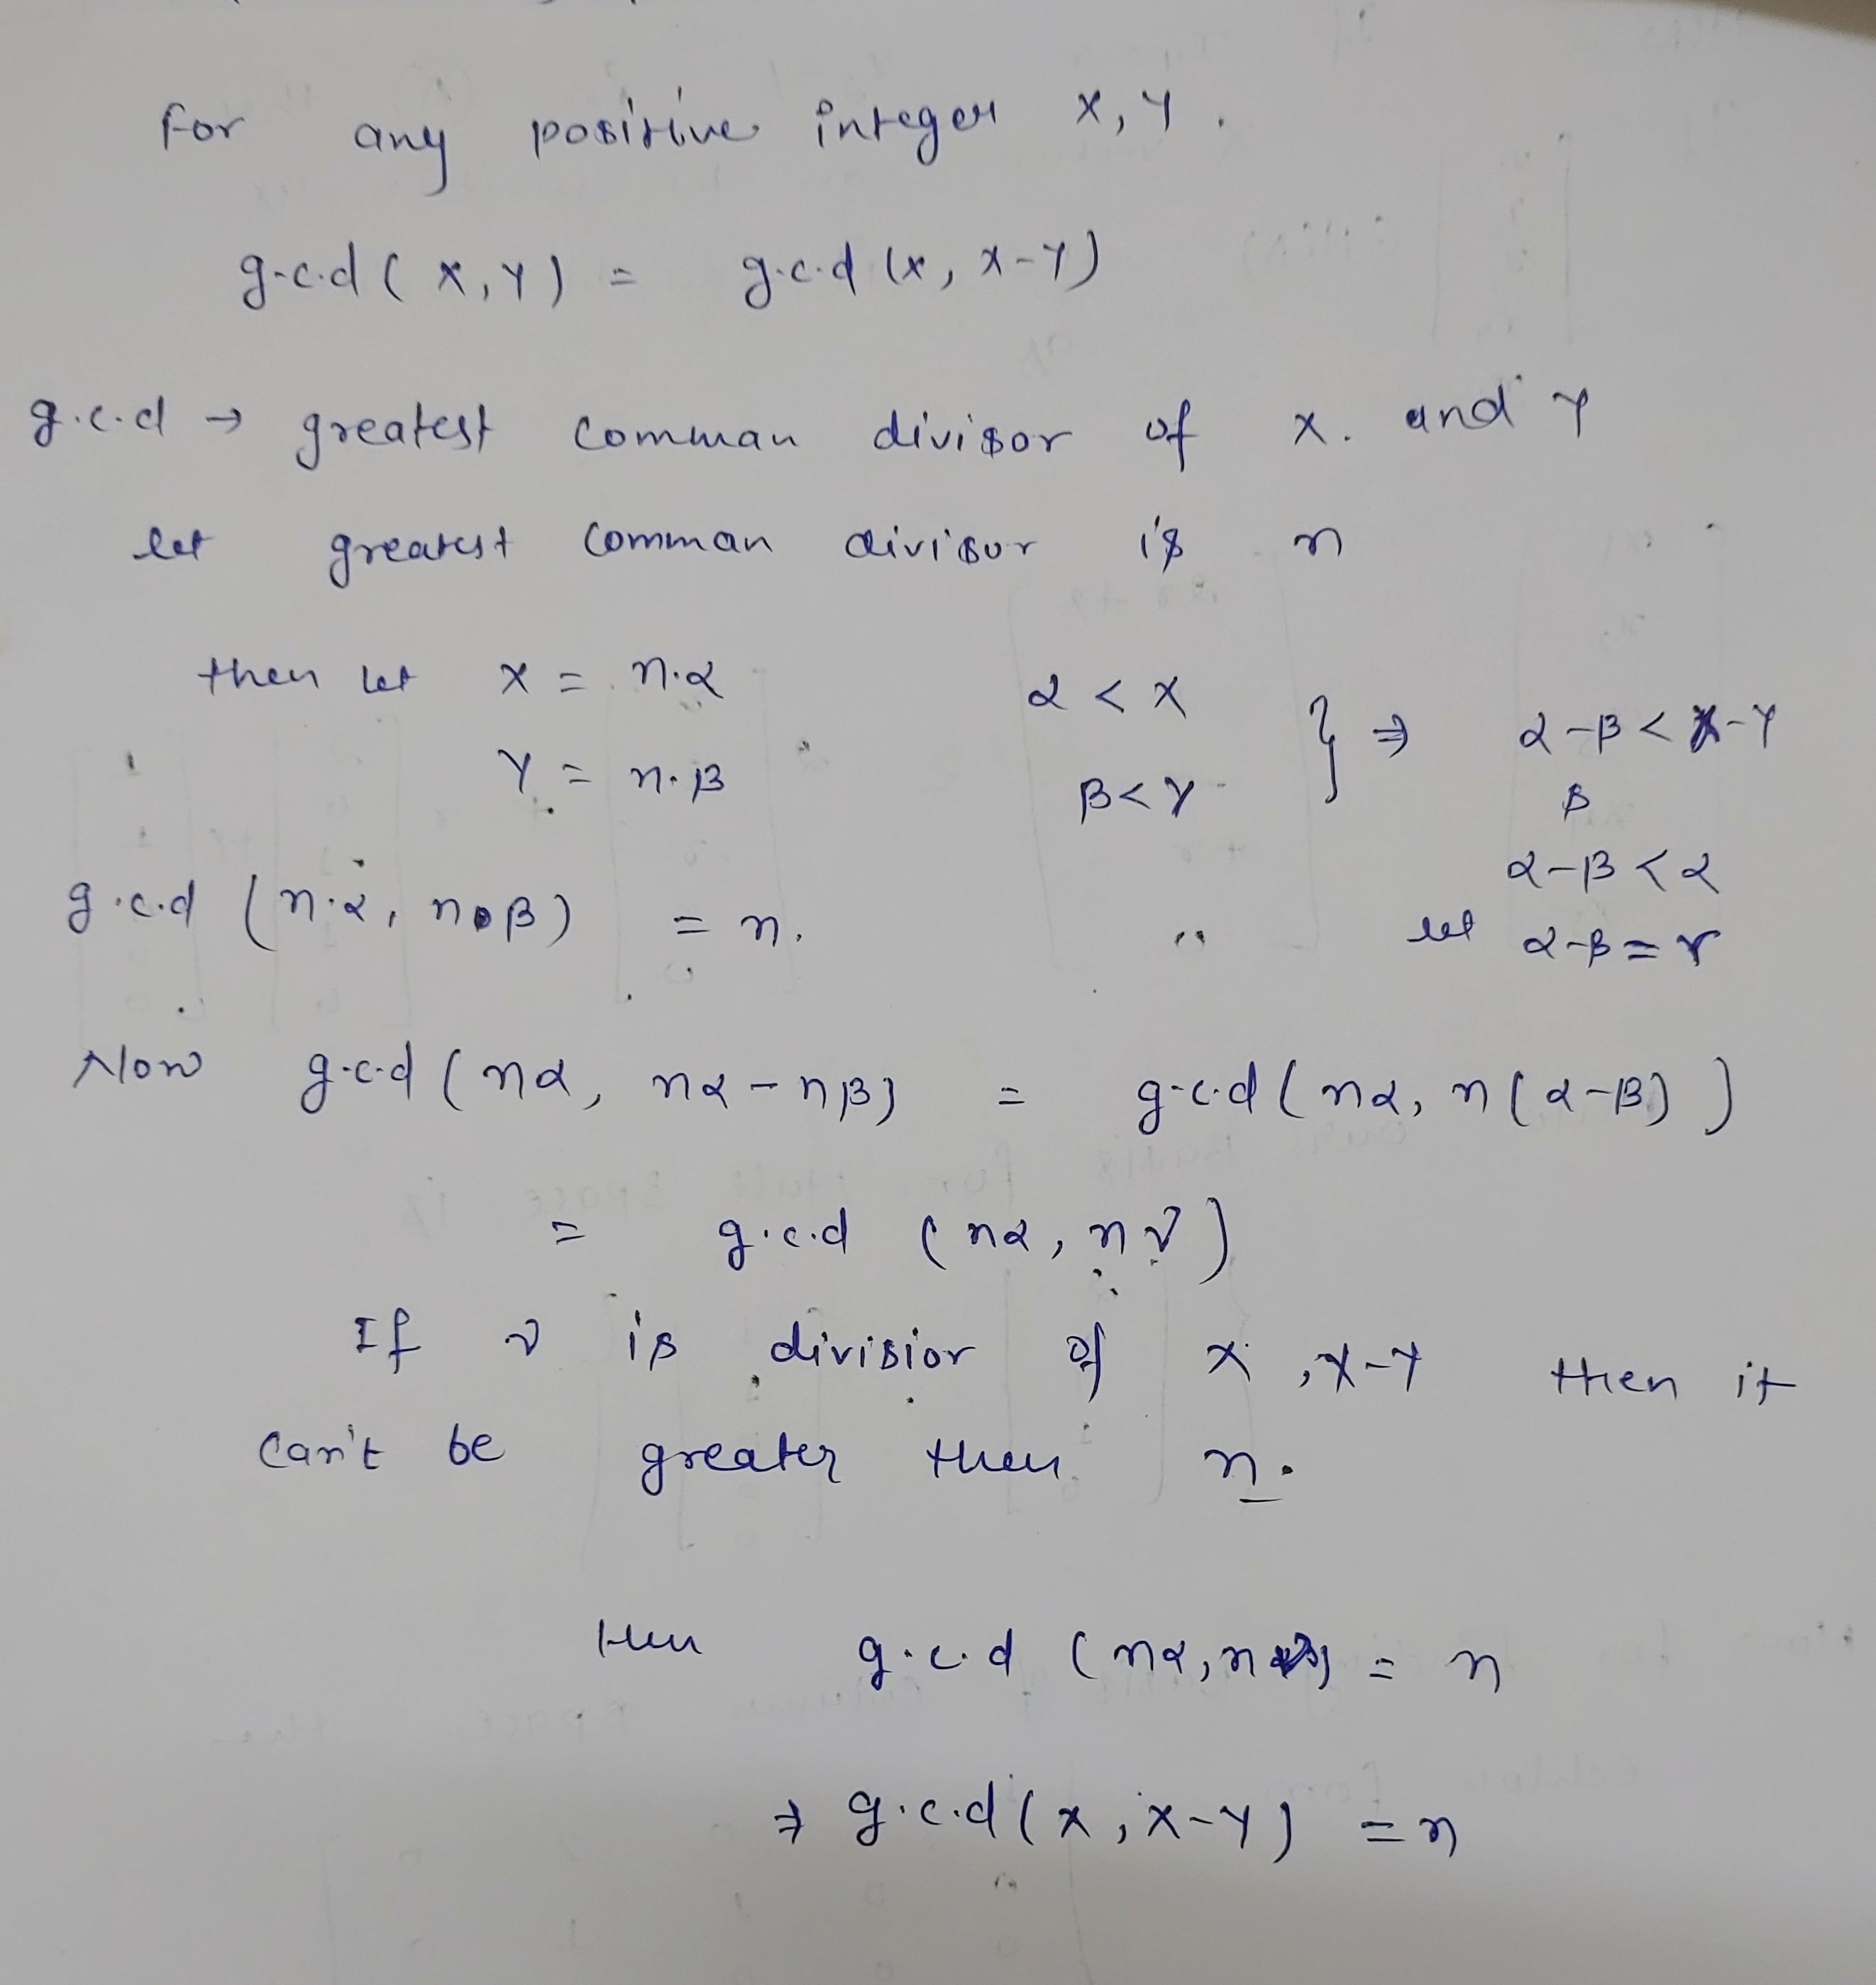 for any positive integer x, y.
g.c.d ( x, y ) = g.c.d (x, x-y)
g.c.d → greatest comman divisor of x. and y
let greatest comman divisor is n
then let x = n.α α < x
y = n.β β < y } ⇒ α-β < x-y
β
α-β < α
g.c.d ( n.α, n.β ) = n. let α-β = r
Now g.c.d ( nα, nα - nβ ) = g.c.d ( nα, n ( α-β ) )
= g.c.d ( nα, n r )
If r is divisior of x, x-y then it
can't be greater then n.
then g.c.d ( nα, n ) = n
⇒ g.c.d ( x, x-y ) = n